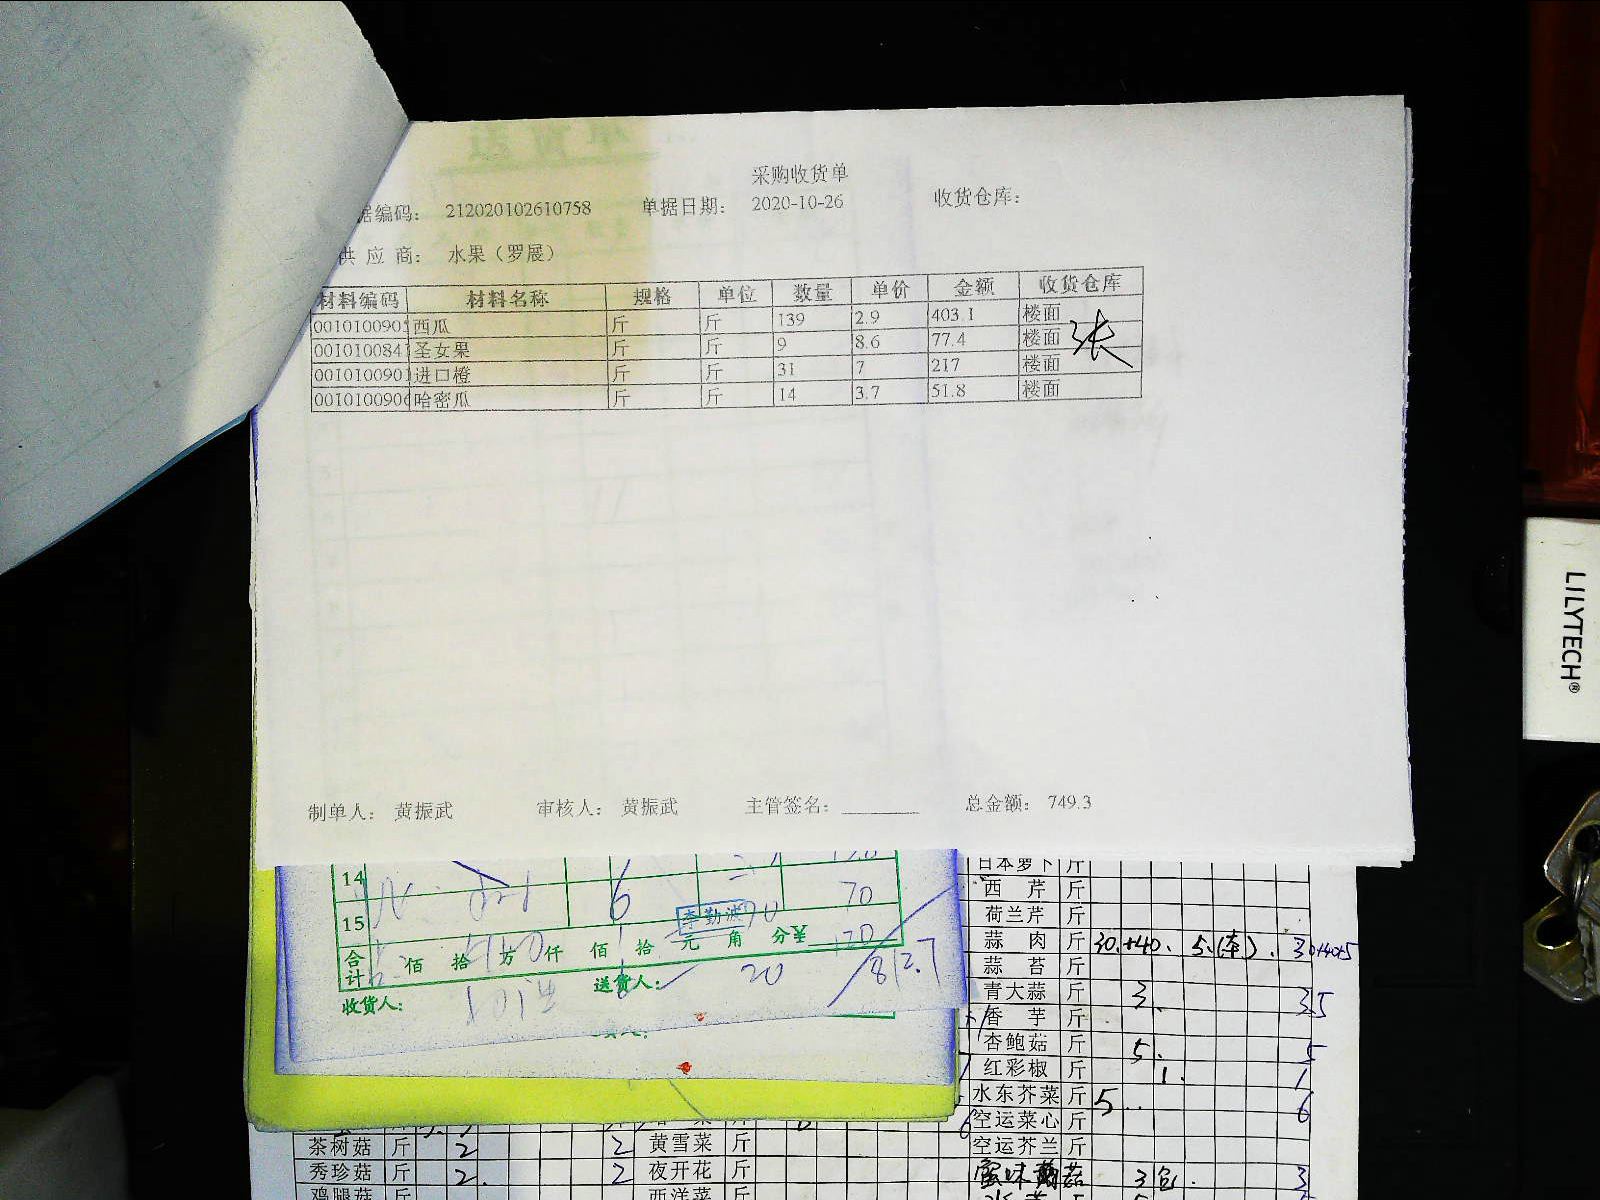 采购收货单
据编码： 212020102610758 单据日期： 2020-10-26 收货仓库：
供 应 商： 水果（罗展）
材料编码 材料名称 规格 单位 数量 单价 金额 收货仓库
001010090 西瓜 斤 斤 139 2.9 403.1 楼面
001010084 圣女果 斤 斤 9 8.6 77.4 楼面
001010090 进口橙 斤 斤 31 7 217 楼面
0010100906 哈密瓜 斤 斤 14 3.7 51.8 楼面
张
制单人： 黄振武 审核人： 黄振武 主管签名： 总金额： 749.3
14
15 6 70
李勤波
合计 佰 拾 万 仟 佰 拾 元 角 分¥ 120
20 812.7
收货人： 送货人：
日本萝卜 斤
西 芹 斤
荷兰芹 斤
蒜 肉 斤 30.+40. 30+40+5
蒜 苔 斤
青大蒜 斤 3. 35
香 芋 斤
杏鲍菇 斤 5. 5
红彩椒 斤 1. 1
水东芥菜 斤 5 6
空运菜心 斤
空运芥兰 斤
3包. 3
茶树菇 斤 2 2 黄雪菜 斤
秀珍菇 斤 2. 2 夜开花 斤
鸡腿菇 斤 西洋菜 斤
LILYTECH®